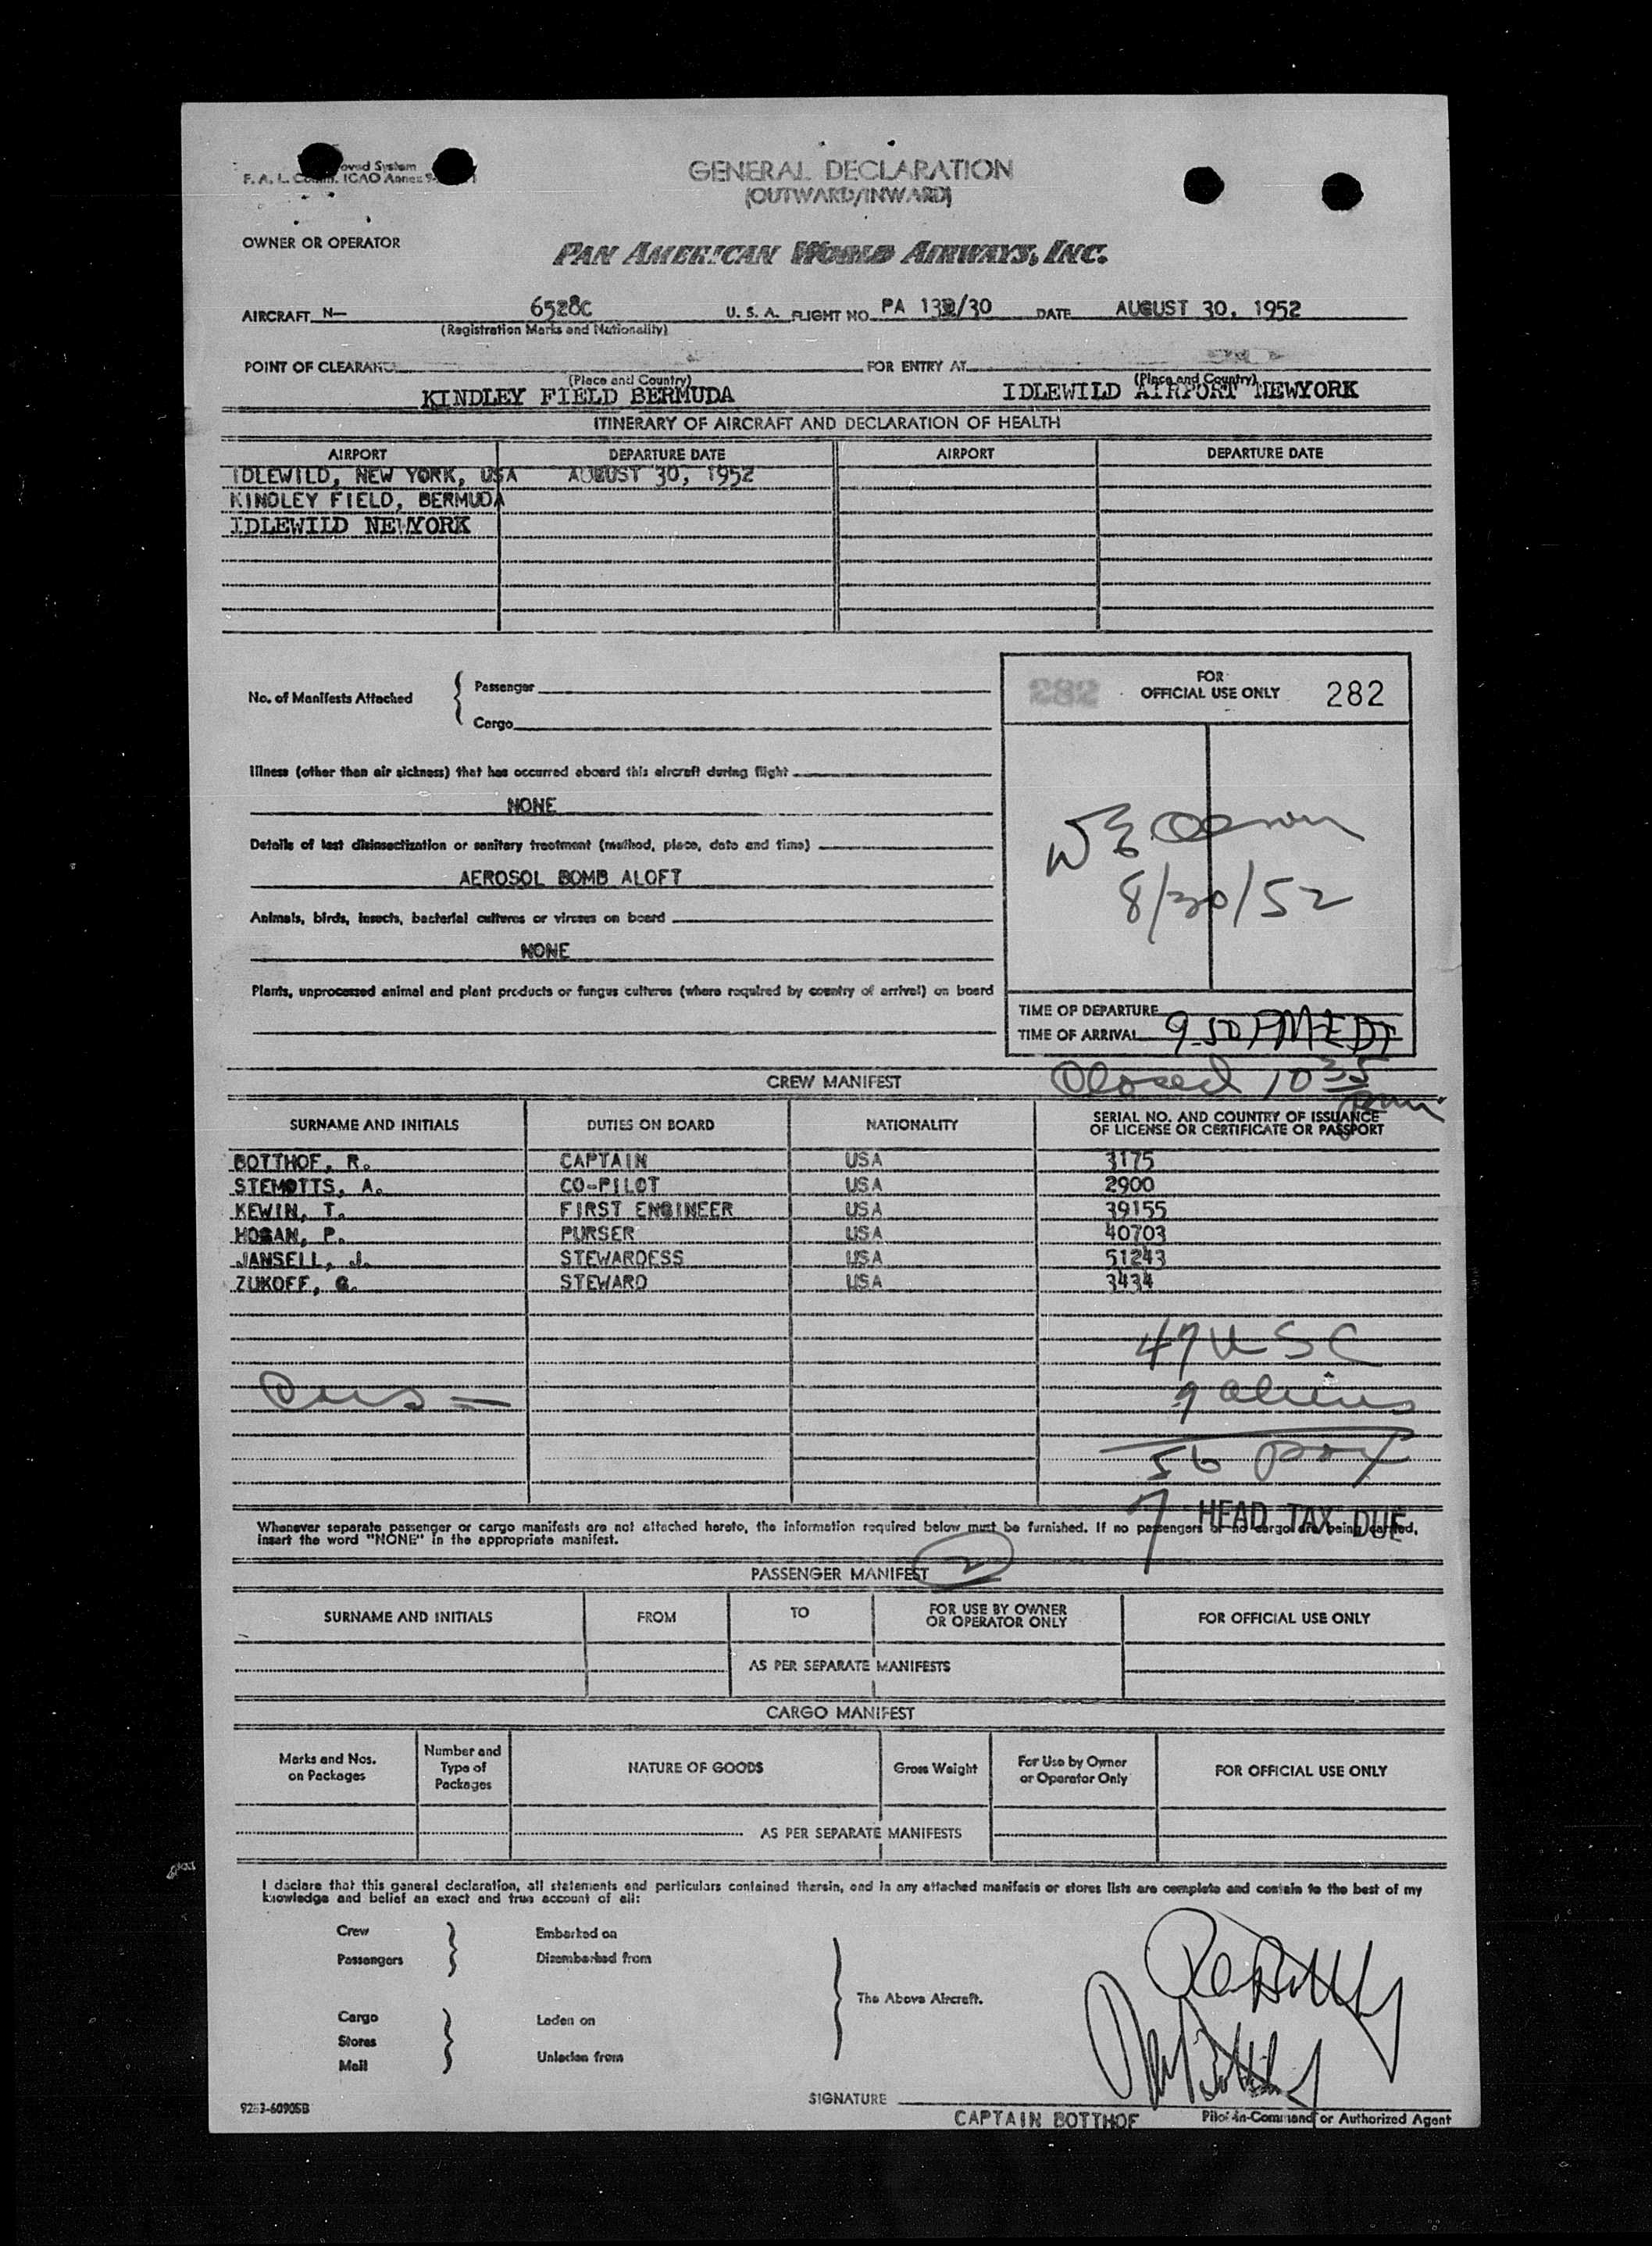 GENERAL DECLARATION
(OUTWARD/INWARD)
oved System
F. A. L. ICAO Annex
OWNER OR OPERATOR
PAN AMERICAN WORLD AIRWAYS, INC.
AIRCRAFT N— 6528C U. S. A. FLIGHT NO. PA 132/30 DATE AUGUST 30, 1952
(Registration Marks and Nationality)
POINT OF CLEARANCE FOR ENTRY AT
(Place and Country) (Place and Country)
KINDLEY FIELD BERMUDA IDLEWILD AIRPORT NEWYORK
ITINERARY OF AIRCRAFT AND DECLARATION OF HEALTH
AIRPORT DEPARTURE DATE AIRPORT DEPARTURE DATE
IDLEWILD, NEW YORK, USA AUGUST 30, 1952
KINDLEY FIELD, BERMUDA
IDLEWILD NEWYORK
No. of Manifests Attached { Passenger
Cargo
282 FOR OFFICIAL USE ONLY 282
Illness (other than air sickness) that has occurred aboard this aircraft during flight
NONE
Details of last disinsectization or sanitary treatment (method, place, date and time)
AEROSOL BOMB ALOFT
8/30/52
Animals, birds, insects, bacterial cultures or viruses on board
NONE
Plants, unprocessed animal and plant products or fungus cultures (where required by country of arrival) on board
TIME OF DEPARTURE
TIME OF ARRIVAL 9.50 PM EDT
Closed 10 35 pm
CREW MANIFEST
SURNAME AND INITIALS DUTIES ON BOARD NATIONALITY SERIAL NO. AND COUNTRY OF ISSUANCE OF LICENSE OR CERTIFICATE OR PASSPORT
BOTTHOF, R. CAPTAIN USA 3175
STEMOTTS, A. CO-PILOT USA 2900
KEWIN, T. FIRST ENGINEER USA 39155
HOGAN, P. PURSER USA 40703
JANSELL, J. STEWARDESS USA 51243
ZUKOFF, G. STEWARD USA 3434
47 USC
9 aliens
56 pax
7 HEAD TAX DUE
Whenever separate passenger or cargo manifests are not attached hereto, the information required below must be furnished. If no passengers or no cargo are being carried,
insert the word "NONE" in the appropriate manifest.
2
PASSENGER MANIFEST
SURNAME AND INITIALS FROM TO FOR USE BY OWNER OR OPERATOR ONLY FOR OFFICIAL USE ONLY
AS PER SEPARATE MANIFESTS
CARGO MANIFEST
Marks and Nos. on Packages Number and Type of Packages NATURE OF GOODS Gross Weight For Use by Owner or Operator Only FOR OFFICIAL USE ONLY
AS PER SEPARATE MANIFESTS
I declare that this general declaration, all statements and particulars contained therein, and in any attached manifests or stores lists are complete and contain to the best of my
knowledge and belief an exact and true account of all:
Crew Embarked on
Passengers Disembarked from
The Above Aircraft.
Cargo Laden on
Stores
Mail Unladen from
SIGNATURE
CAPTAIN BOTTHOF Pilot-in-Command or Authorized Agent
9253-60905B